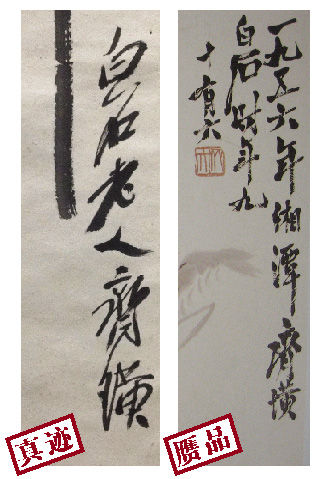 白石老人齊璜
真迹
一九五六年湘潭齊璜
白石時年九
十有六
赝品